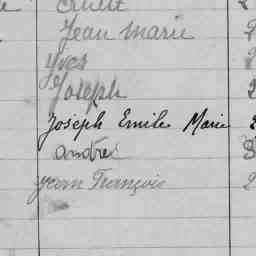 Jean Marie
Yves
Joseph
Joseph Emile Marie
André
Jean François